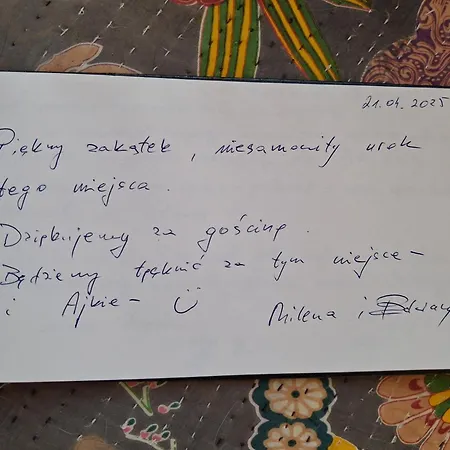 21.04.2025
Piękny zakątek, niesamowity urok
tego miejsca.
Dziękujemy za gościnę.
Będziemy tęsknić za tym miejsce-
i Ajkie- ü
Milena i